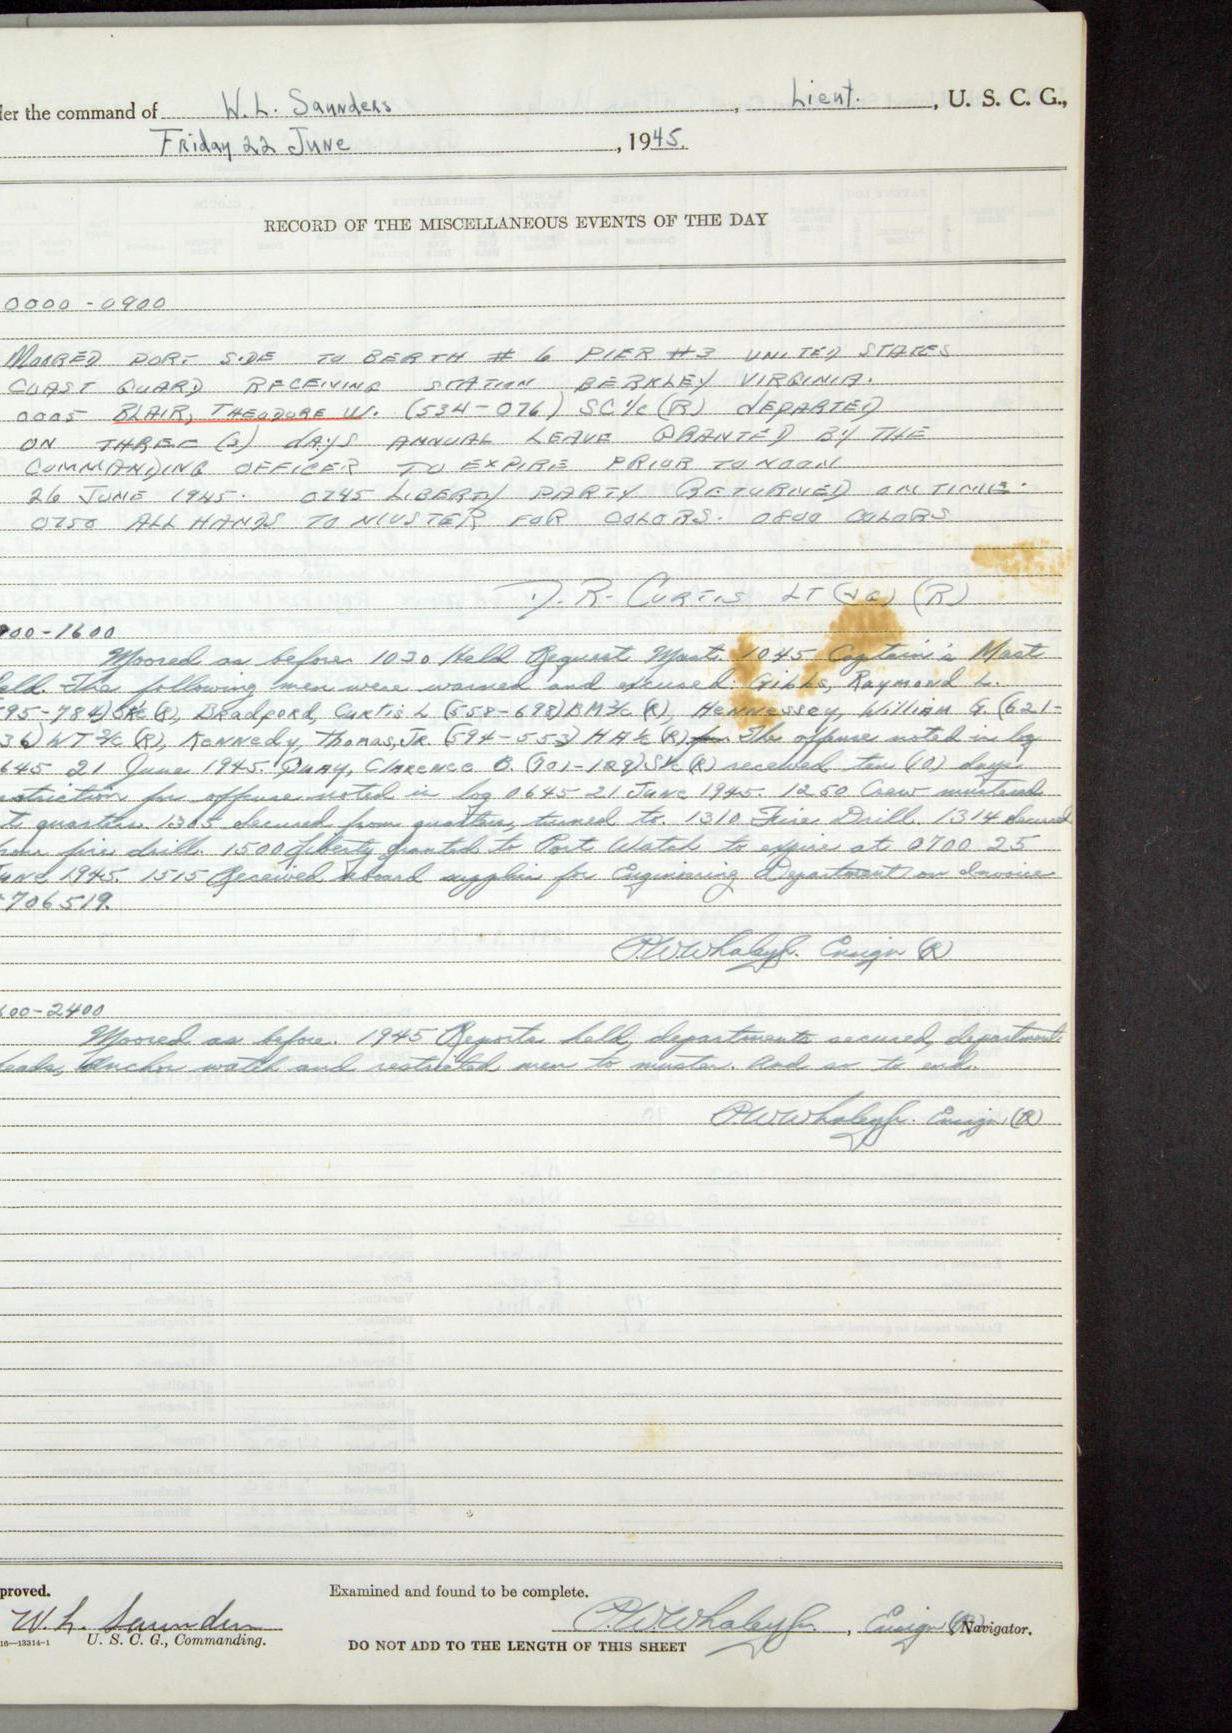 der the command of W. L. Saunders, Lieut., U. S. C. G.,
Friday 22 June, 1945.
RECORD OF THE MISCELLANEOUS EVENTS OF THE DAY
0000-0900
MOORED PORT SIDE TO BERTH # 6 PIER #3 UNITED STATES
COAST GUARD RECEIVING STATION BERKLEY VIRGINIA.
0005 BLAIR, THEODORE W. (534-076) SC 1/c (R) DEPARTED
ON THREE (3) DAYS ANNUAL LEAVE GRANTED BY THE
COMMANDING OFFICER TO EXPIRE PRIOR TO NOON
26 JUNE 1945. 0745 LIBERTY PARTY RETURNED ON TIME.
0750 ALL HANDS TO MUSTER FOR COLORS. 0800 COLORS
D. R. CURTIS LT (JG) (R)
900-1600
Moored as before. 1030 Held Request Mast. 1045 Captain's Mast
eld. The following men were warned and excused: Gibbs, Raymond L.
595-784) (R), Bradford, Curtis L (558-698) BM 2/c (R), Hennessey, William G. (621-
36) WT 3/c (R), Kennedy, Thomas, Jr. (594-553) HA 1/c (R) for The offense noted in log
645 21 June 1945. Quay, Clarence B. (701-129) S1/c (R) received ten (10) days
estriction for offense noted in log 0645 21 June 1945. 1250 Crew mustered
t quarters. 1305 secured from quarters, turned to. 1310 Fire Drill. 1314 Secured
rom fire drill. 1500 Liberty granted to Port Watch to expire at 0700 25
une 1945. 1515 Received aboard supplies for Engineering Department on Invoice
706519.
P.W. Whaley Jr. Ensign (R)
600-2400
Moored as before. 1945 Reports held, departments secured, department
heads, anchor watch and restricted men to muster. And so to end.
P.W. Whaley Jr. Ensign (R)
proved.
Examined and found to be complete.
W. L. Saunders
P.W. Whaley Jr., Ensign (R) Navigator.
16—13314-1 U. S. C. G., Commanding.
DO NOT ADD TO THE LENGTH OF THIS SHEET